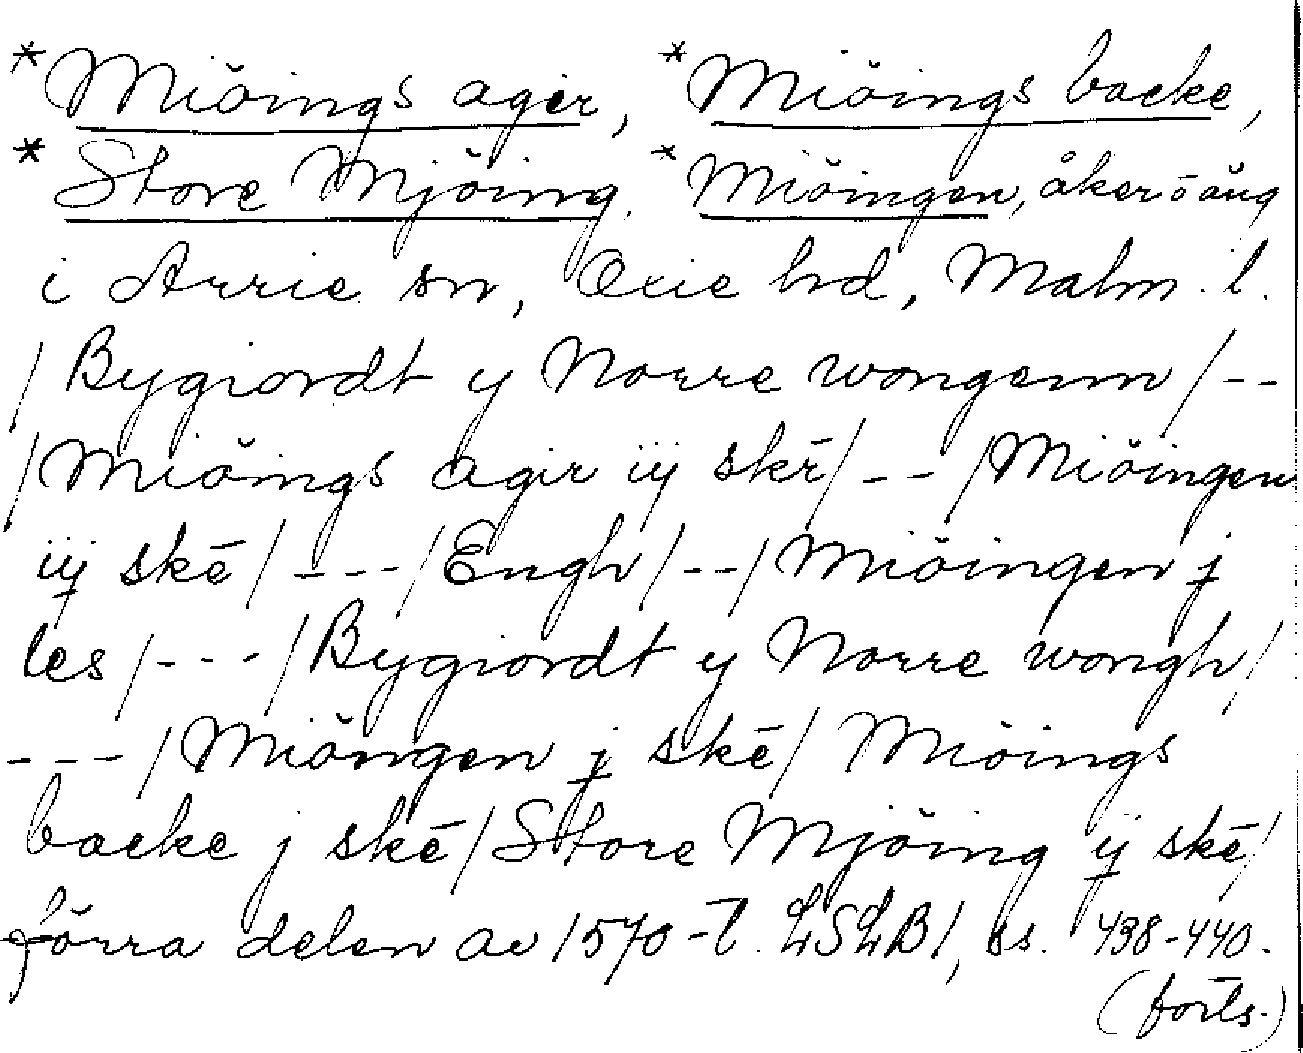 *Miöings ager, *Miöings backe,
*Store Mjöing. *Miöingen, åker o äng
i Arrie sn, Oxie hd, Malm. l.
/Bygiordt y Norre wongenn/--
/Miöings agir iij skē/--/Miöingen
iij skē/---/Engh/--/Miöingen j
les/---/Bygiordt y Norre wongh/
---/Miöngen j skē/Miöings
backe j skē/Store Mjöing ij skē/
förra delen av 1570-t. LSLB1, ss. 438-440.
(forts.)